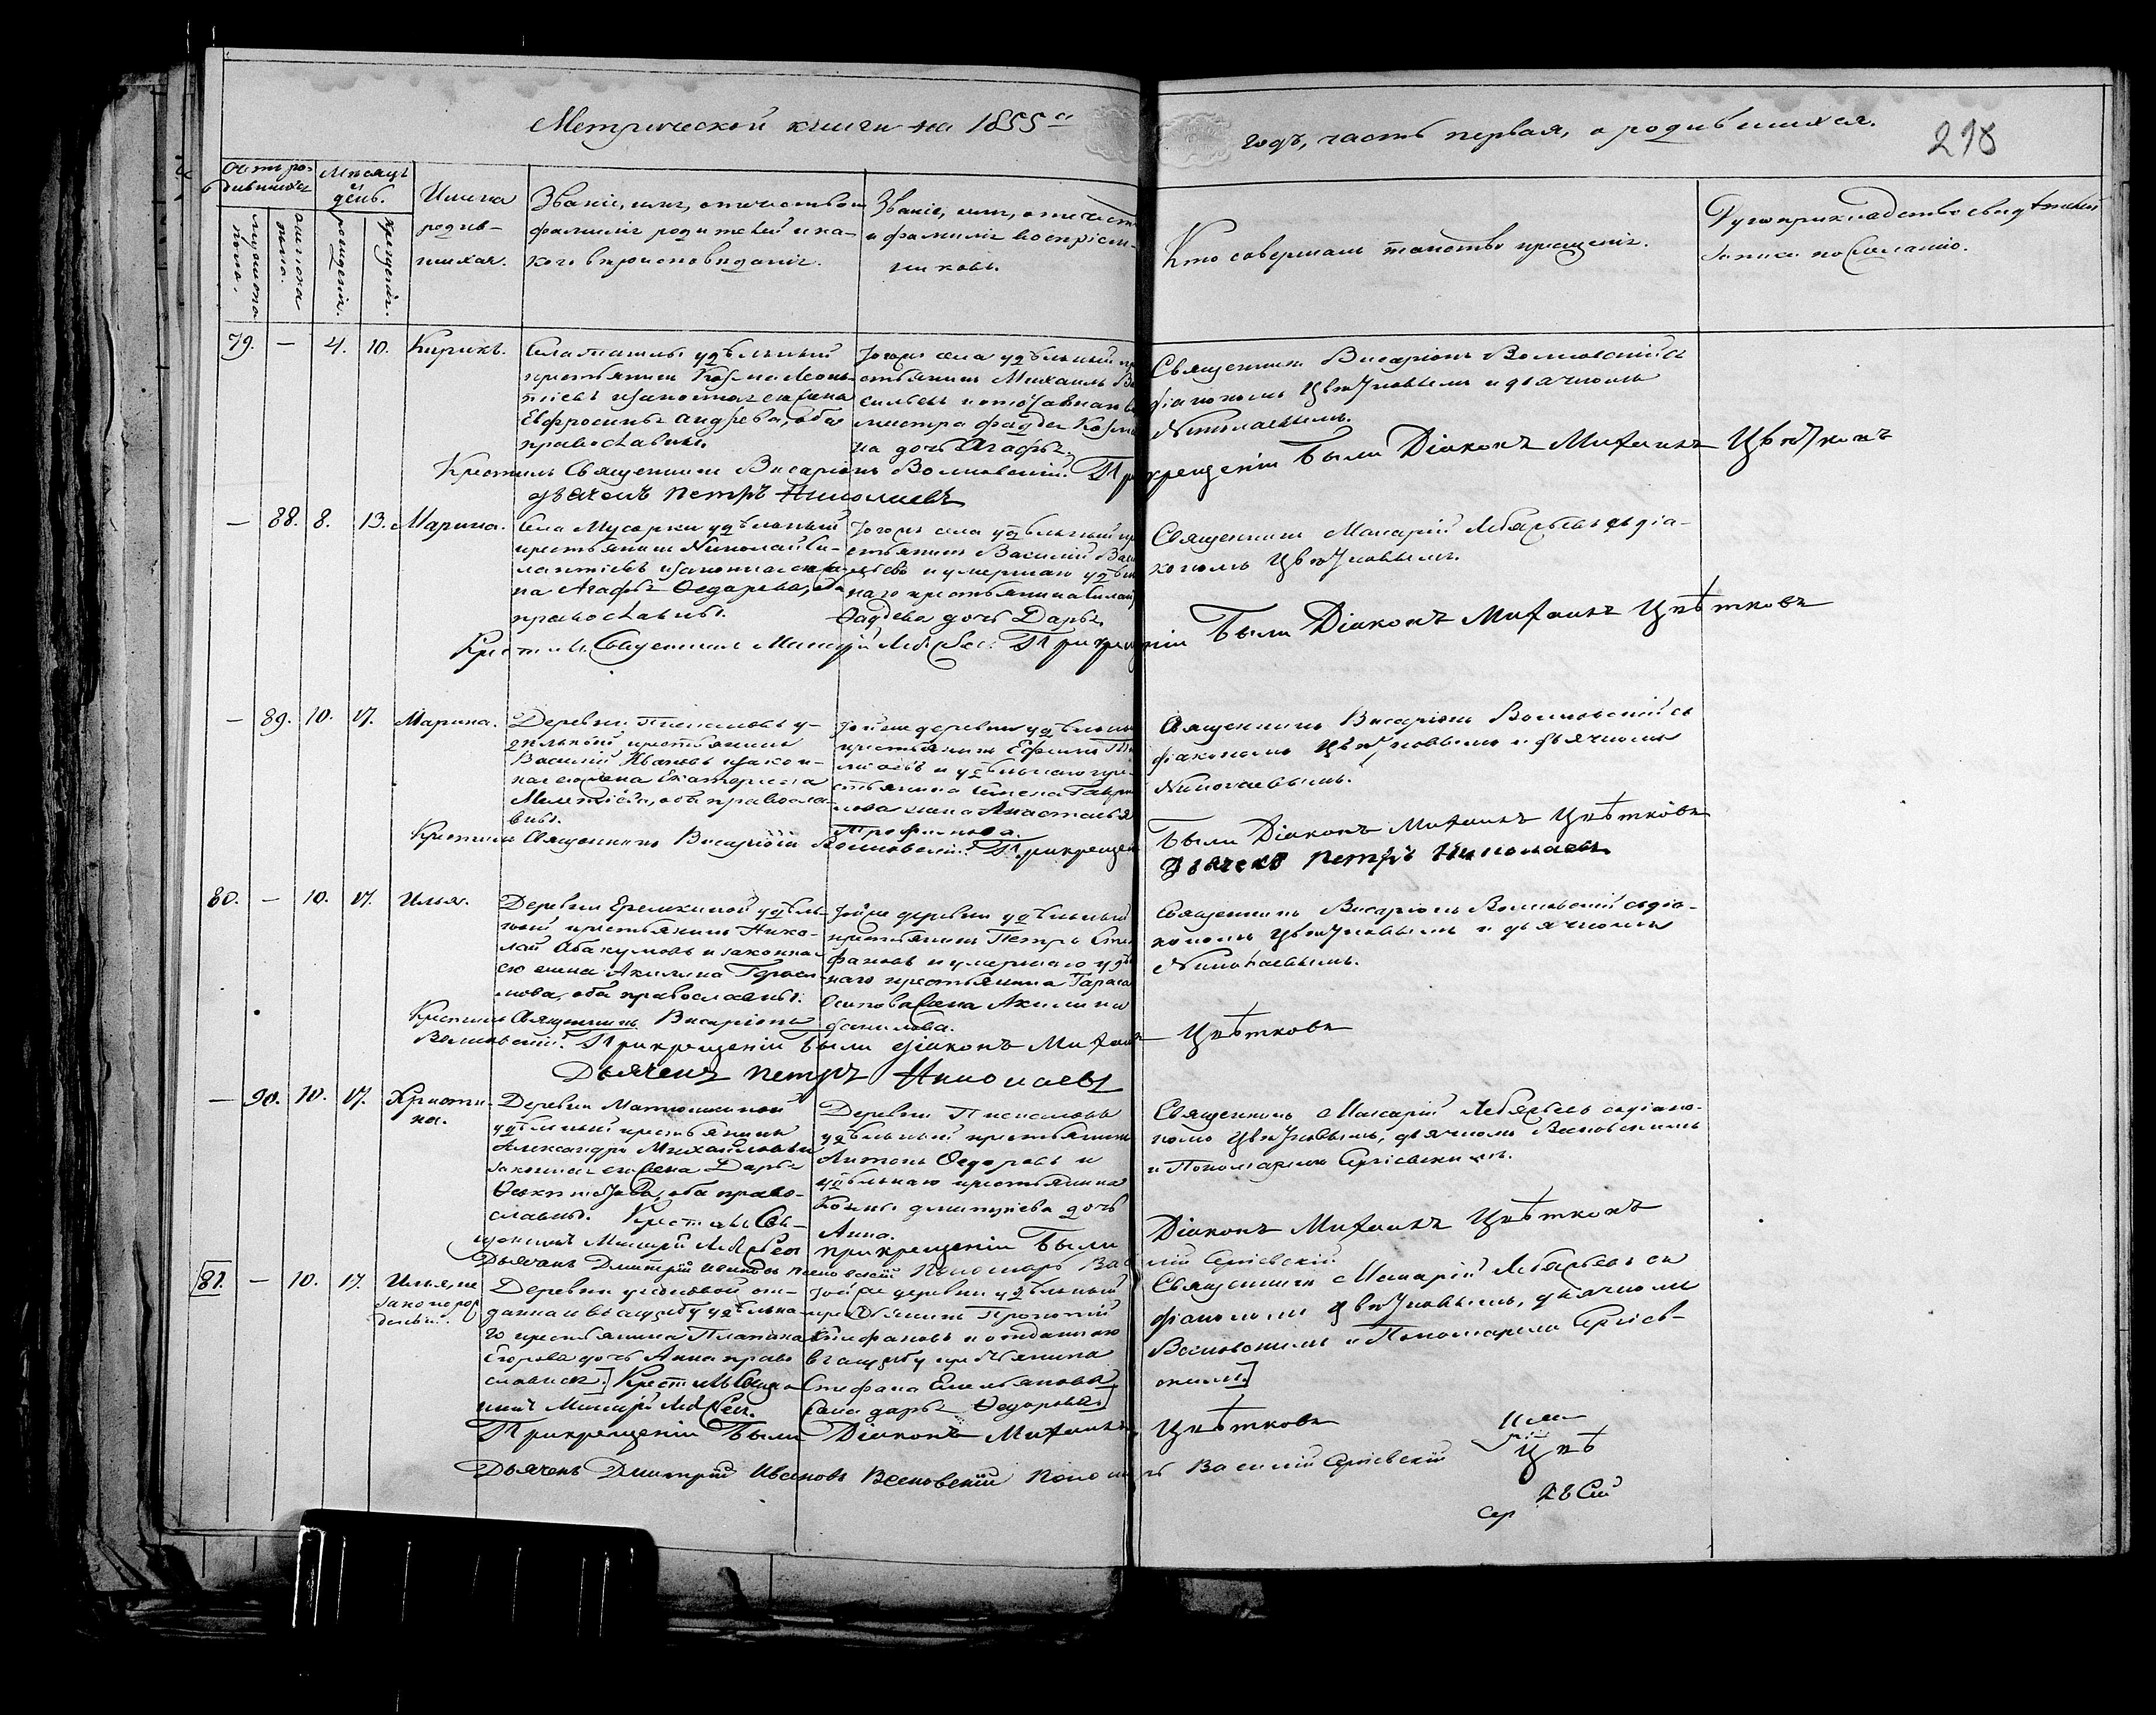 Метрической книги на 1855й
годъ, часть первая, о родившихся.
218
Мѣсяцъ
и
день.
мужеска
пола.
женска
пола.
рожденія.
крещенія.
Имена
родив-
шихся.
Званіе, имя, отечество и
фамилія родителей и ка-
кого вѣроисповѣданія.
Званіе, имя, отечест
и фамилія воспріем-
никовъ.
Кто совершалъ таинство крещенія.
Рукоприкладство свидѣтелей
записи по желанію.
79. — 4. 10. Кирикъ.
удѣльный
крестьянинъ Козма Леонь-
тіевъ и законная его жена
Евфросинья Андреева, оба
православные.
Тогоже села удѣльный кр
стьянинъ Михаилъ Ва
сильевъ
Козми
на дочь Агафья.
Священникъ Висаріонъ Волновскій съ
діакономъ Цвѣтковымъ и дьячкомъ
Николаевымъ.
Крестилъ Священникъ Висаріонъ Волновскій. При крещеніи были Діаконъ Михаилъ Цвѣтковъ
дьячекъ Петръ Николаевъ
— 88. 8. 13. Марина.
Села Мусорки удѣльный
крестьянинъ Николай Си-
лантіевъ и законная его же-
на Агафья Ѳедорова, оба
православные.
Тогоже села удѣльный кр
стьянинъ Василій Васи
льевъ и умершаго удѣль
наго крестьянина
Ѳадѣева дочь Дарья.
Священникъ Макарій Лебяжьевъ съ діа-
кономъ Цвѣтковымъ.
Крестилъ Священникъ Макарій Лебяжьевъ. При крещеніи были Діаконъ Михаилъ Цвѣтковъ
— 89. 10. 17. Марина.
Деревни Пискаловъ у-
дѣльный крестьянинъ
Василій Ивановъ и закон-
ная его жена Екатерина
Мелентіева, оба православ-
ные.
Тойже деревни удѣльный
крестьянинъ Ефимъ
и удѣльнаго кре-
стьянина Семена Гаври
лова жена Анастасья
Трофимова.
Священникъ Висаріонъ Волновскій съ
діакономъ Цвѣтковымъ и дьячкомъ
Николаевымъ.
Крестилъ Священникъ Висаріонъ Волновскій. При крещеніи
были Діаконъ Михаилъ Цвѣтковъ
Дьячекъ Петръ Николаевъ
80. — 10. 17. Илья.
Деревни Еремкиной удѣль-
ный крестьянинъ Нико-
лай Абакумовъ и законная
его жена Акилина Гераси-
мова, оба православные.
Тойже деревни удѣльный
крестьянинъ Петръ Сте
фановъ и умершаго удѣль
наго крестьянина Тараса
Осипова жена Акилина
Данилова.
Священникъ Висаріонъ Волновскій съ діа-
кономъ Цвѣтковымъ и дьячкомъ
Николаевымъ.
Крестилъ Священникъ Висаріонъ
Волновскій. При крещеніи были діаконъ Михаилъ Цвѣтковъ
Дьячекъ Петръ Николаевъ
— 90. 10. 17. Христи-
на.
Деревни Матюшкиной
удѣльный крестьянинъ
Александръ Михайловъ и
законная его жена Дарья
оба право-
славные. Крестилъ Свя-
щенникъ Макарій Лебяжьевъ
Деревни Пискаловъ
удѣльный крестьянинъ
Антонъ Ѳедоровъ и
удѣльнаго крестьянина
Козмы Дмитріева дочь
Анна.
при крещеніи были
Священникъ Макарій Лебяжьевъ съ діако-
номъ Цвѣтковымъ, дьячкомъ Волновскимъ
и Пономаремъ Сергіевскимъ.
Діаконъ Михаилъ Цвѣтковъ
Дьячекъ Дмитрій Ивановъ Пономарь Василій Сергіевскій
81. — 10. 17. Илья, не
законорож
денный.
Деревни
данная въ службу удѣльна-
го крестьянина Платона
Егорова дочь Анна право
славная. Крестилъ Священ-
никъ Макарій Лебяжьевъ.
Тойже деревни удѣльный
крестьянинъ Прокопій
Стефановъ и отданнаго
въ службу крестьянина
Стефана Емельянова
жена Дарья Ѳедорова.
Священникъ Макарій Лебяжьевъ съ
діакономъ Цвѣтковымъ, дьячкомъ
и Пономаремъ Сергіев-
скимъ.
При крещеніи были Діаконъ Михаилъ Цвѣтковъ
Дьячекъ Дмитрій Ивановъ Пономарь Василій Сергіевскій
Цвѣ
Сер